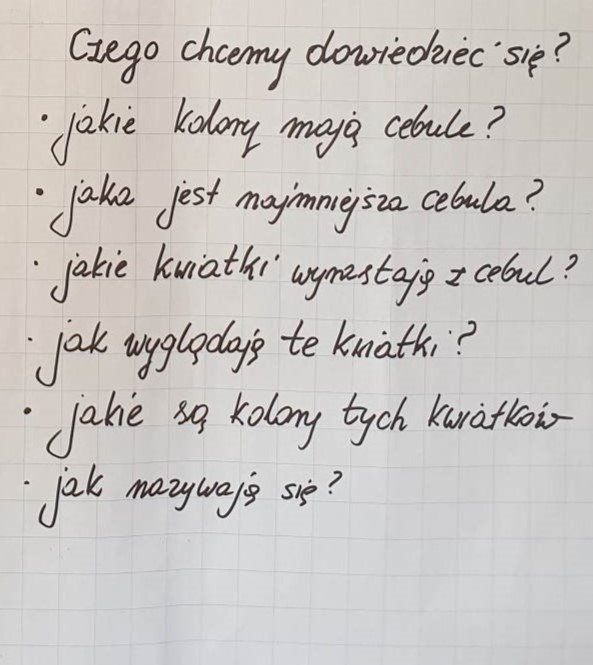 Czego chcemy dowiedzieć się?
• jakie kolory mają cebule?
• jaka jest najmniejsza cebula?
• jakie kwiatki wyrastają z cebul?
• jak wyglądają te kwiatki?
• jakie są kolory tych kwiatków
• jak nazywają się?